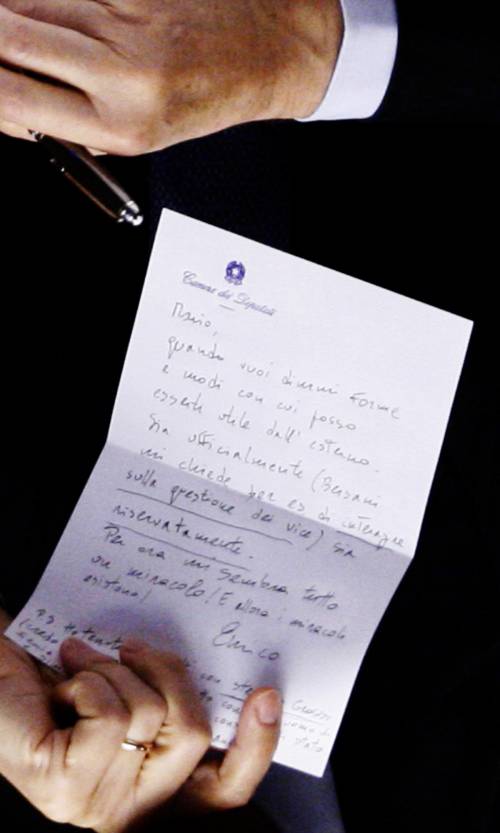 Camera dei Deputati
Mario,
quando vuoi dimmi forme
e modi con cui posso
esserti utile dall'esterno.
Sia ufficialmente (Bersani
mi chiede per es. di interagire
sulla questione dei vice) sia
riservatamente.
Per ora mi sembra tutto
un miracolo! E allora i miracoli
esistono!
Enrico
con